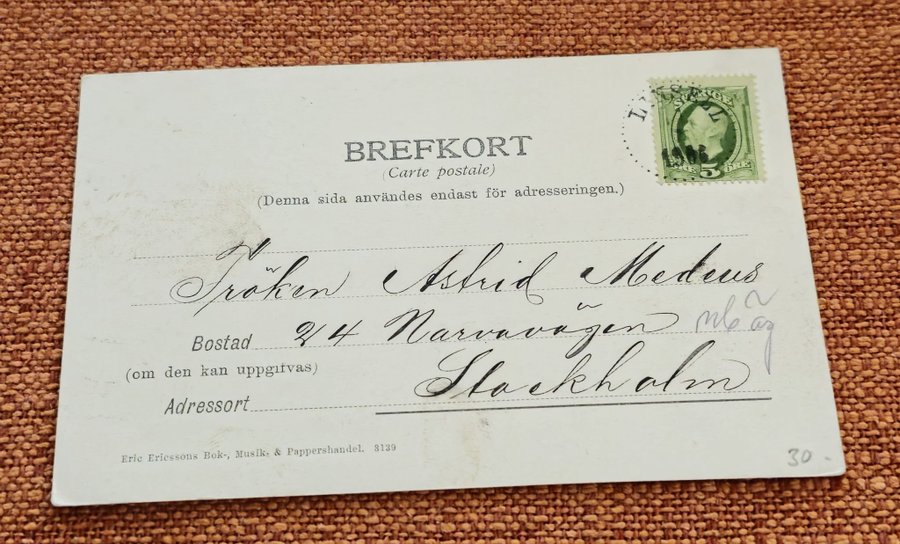 BREFKORT
(Carte postale)
(Denna sida användes endast för adresseringen.)
1906
5 ÖRE
Fröken Astrid Medeus
Bostad 24 Narvavägen
(om den kan uppgifvas)
Stockholm
Adressort
Eric Ericssons Bok-, Musik- & Pappershandel. 3139
30 -